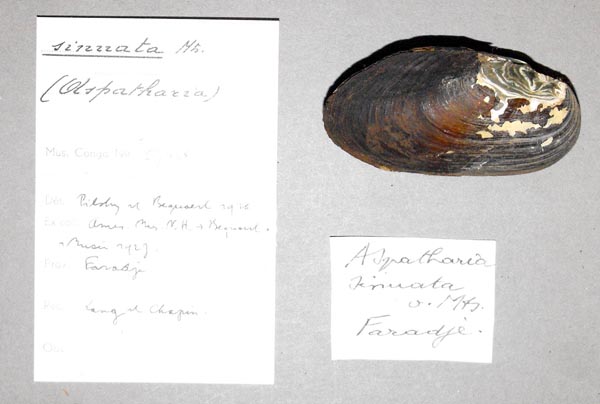 sinuata Mts.
(Aspatharia)
Mus. Congo Tvr.
Dét. Pilsbry et Bequaert 1926
Ex coll. Amer. Mus. N.H. + Bequaert
1927
Prov. Faradje
Réc. Lang et Chapin.
Obs.
Aspatharia
sinuata
v. Mts.
Faradje.